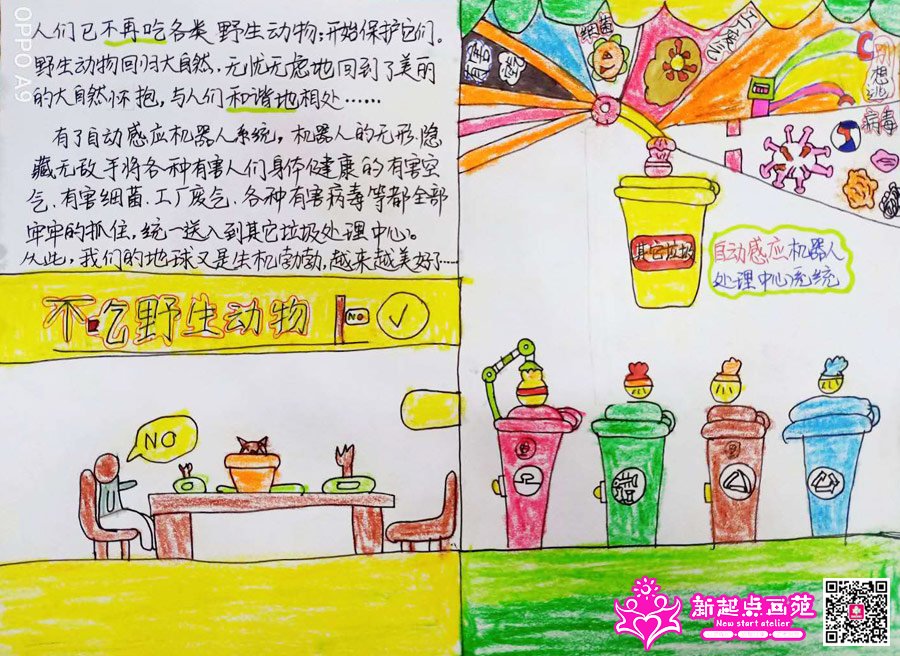 人们已不再吃各类野生动物;开始保护它们。
野生动物回归大自然,无忧无虑地回到了美丽
的大自然怀抱,与人们和谐地相处……
有了自动感应机器人系统,机器人的无形隐
藏无敌手将各种有害人们身体健康的有害空
气、有害细菌、工厂废气、各种有害病毒等都全部
牢牢的抓住,统一送入到其它垃圾处理中心。
从此,我们的地球又是生机勃勃,越来越美好了……
不吃野生动物
NO
NO
细菌
病毒
其它垃圾
自动感应机器人
处理中心系统
OPPO A9
新起点画苑
New start atelier